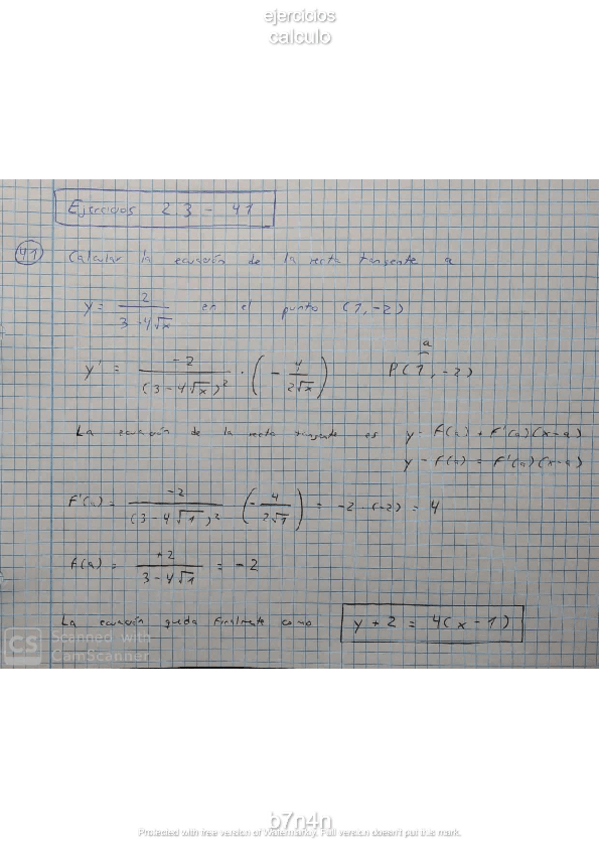 ejercicios
calculo
Ejercicios 2.3 - 41
41 Calcular la ecuación de la recta tangente a
y = 2 / (3 - 4√x) en el punto (1, -2)
a
y' = -2 / (3 - 4√x)² · (- 4 / 2√x) P(1, -2)
La ecuación de la recta tangente es y = f(a) + f'(a)(x-a)
y - f(a) = f'(a)(x-a)
F'(a) = -2 / (3 - 4√1)² (- 4 / 2√1) = -2 · (-2) = 4
f(a) = +2 / (3 - 4√1) = -2
La ecuación queda finalmente como y + 2 = 4(x - 1)
CS Scanned with
CamScanner
b7n4n
Protected with free version of Watermarkly. Full version doesn't put this mark.